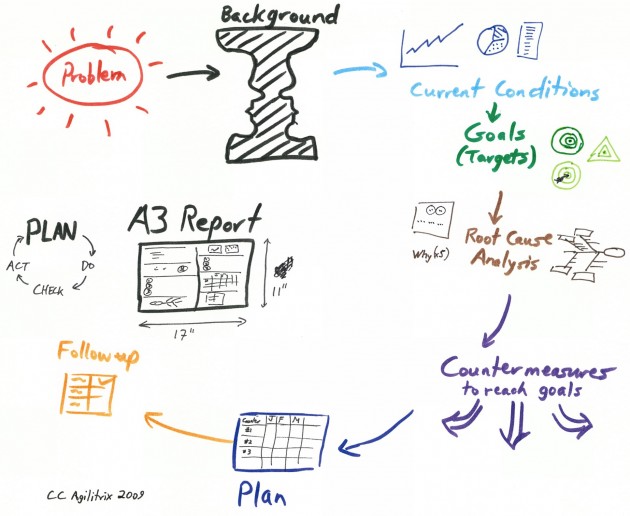 Background
Problem
Current Conditions
Goals
(Targets)
Root Cause
Analysis
Why(x5)
A3 Report
11"
17"
PLAN
DO
CHECK
ACT
Countermeasures
to reach goals
Follow up
Counter J F M
#1
#2
#3
Plan
CC Agilitrix 2009